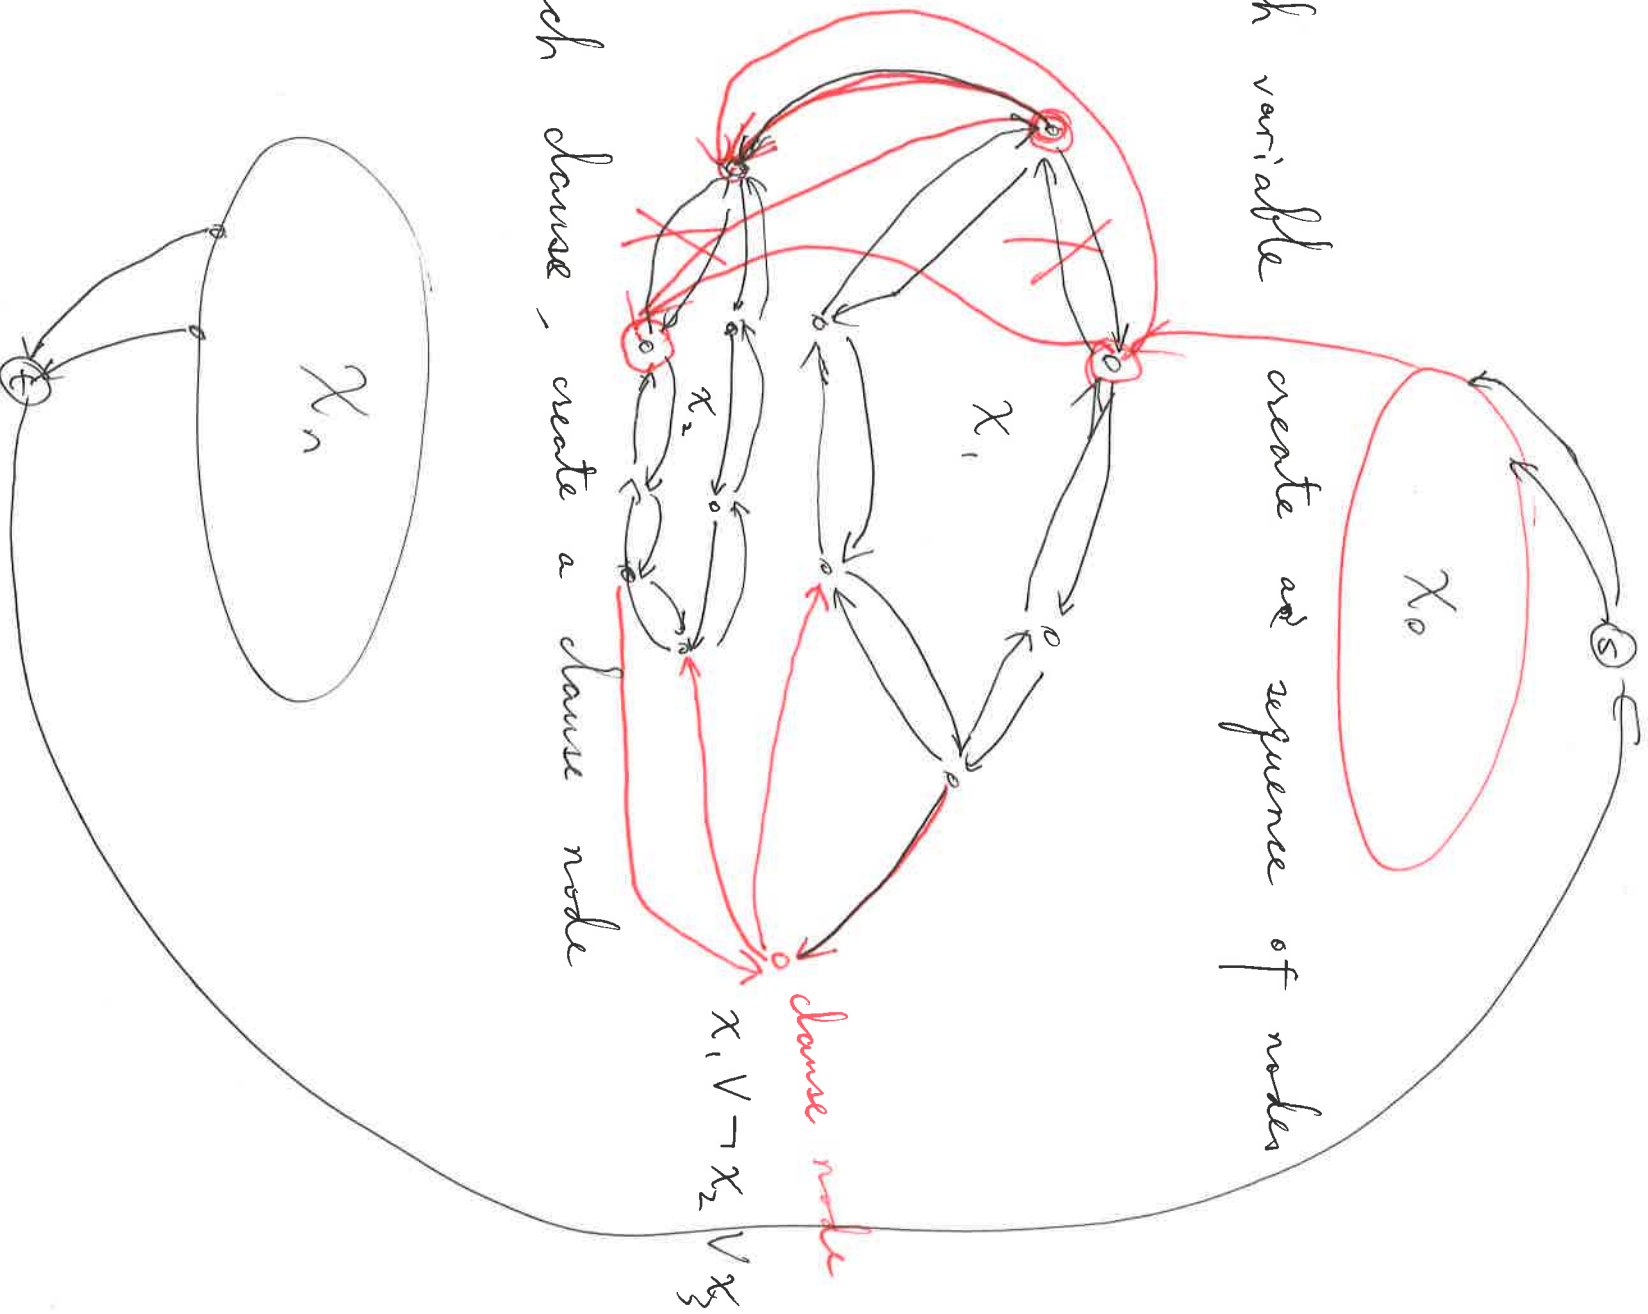 s
x₀
h variable create a sequence of nodes
x₁
clause node
x₁ V ¬x₂ V x₃
x₂
ch clause, create a clause node
xₙ
t